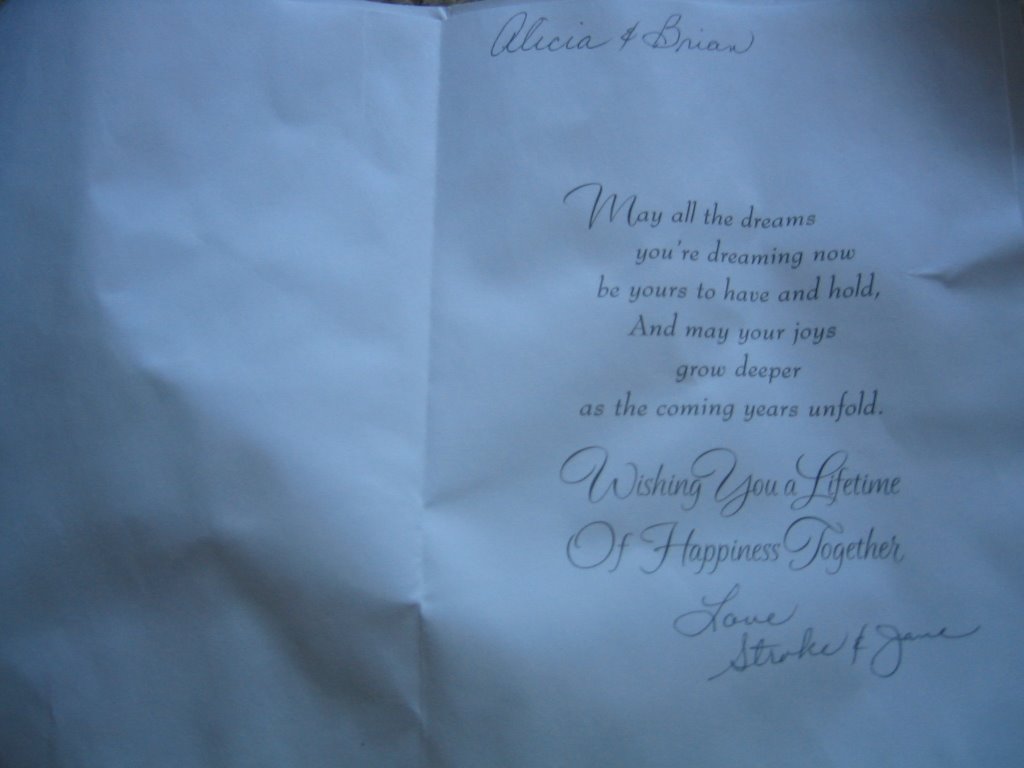 Alicia & Brian
May all the dreams
you're dreaming now
be yours to have and hold,
And may your joys
grow deeper
as the coming years unfold.
Wishing You a Lifetime
Of Happiness Together
Love
Stroke & Jane